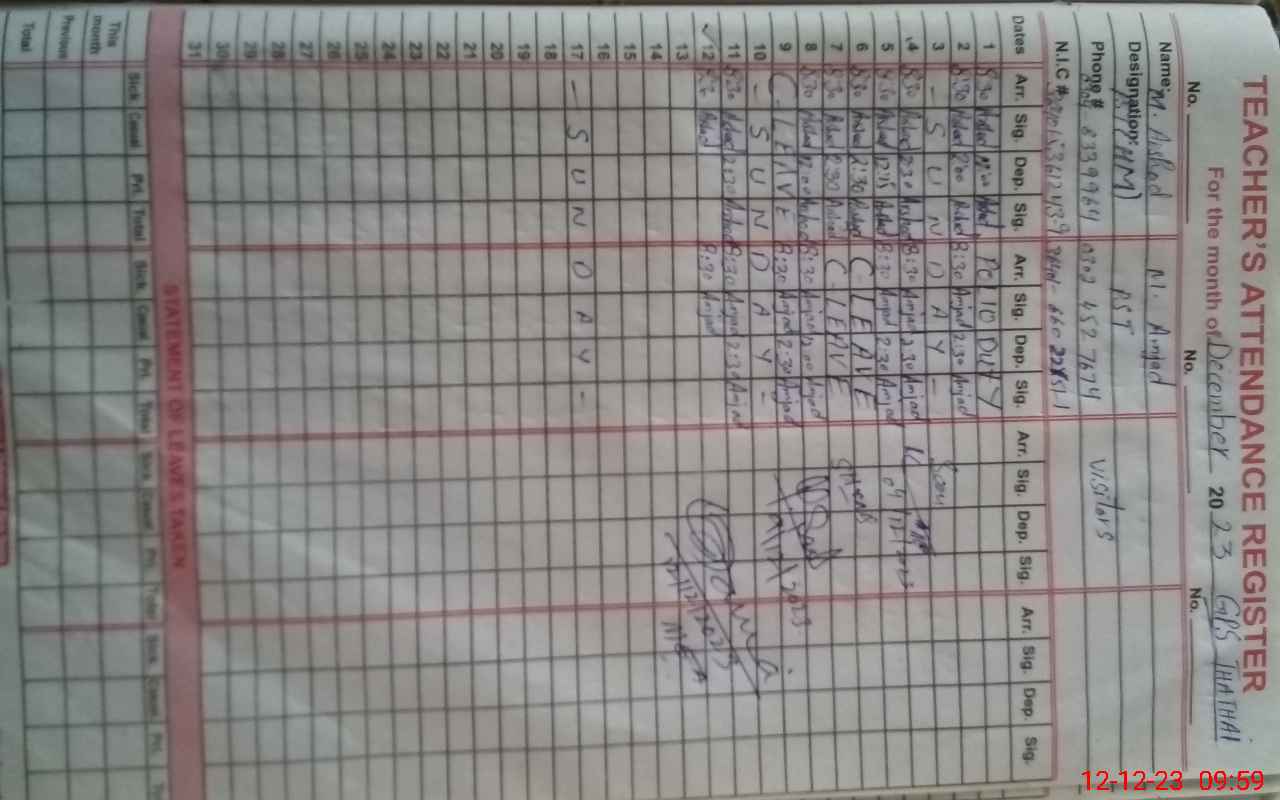 TEACHER'S ATTENDANCE REGISTER
For the month of December 2023 GPS THATHAI
No. No. No.
Name: M. Arshad M. Amjad
Designation: PST (HM) PST
Phone # 0302 452 7674 Visitors
N.I.C #
Dates Arr. Sig. Dep. Sig. Arr. Sig. Dep. Sig. Arr. Sig. Dep. Sig. Arr. Sig. Dep. Sig.
1 8:30 Arshad 12:00 Arshad Polio Duty
2 8:30 Arshad 2:00 Arshad 8:30 Amjad 2:30 Amjad
3 - S U N D A Y -
4 8:30 Arshad 2:30 Arshad 8:30 Amjad 2:30 Amjad
5 8:30 Arshad 12:15 Arshad 8:30 Amjad 2:30 Amjad 04/12/2023
6 8:30 Arshad 2:30 Arshad C-LEAVE
7 8:30 Arshad 2:30 Arshad C-LEAVE
8 8:30 Arshad 12:00 Arshad 8:30 Amjad 12:00 Amjad
9 C-LEAVE 8:30 Amjad 2:30 Amjad
10 - S U N D A Y -
11 8:30 Arshad 2:30 Arshad 8:30 Amjad 2:30 Amjad
12 8:30 Arshad 8:30 Amjad
13 MEA
14
15
16
17 - S U N D A Y -
18
19
20
21
22
23
24
25
26
27
28
29
30
31
STATEMENT OF LEAVES TAKEN
Sick Casual Pvt. Total Sick Casual Pvt. Total Sick Casual Pvt. Total Sick Casual Pvt.
This month
Previous
Total
12-12-23 09:59